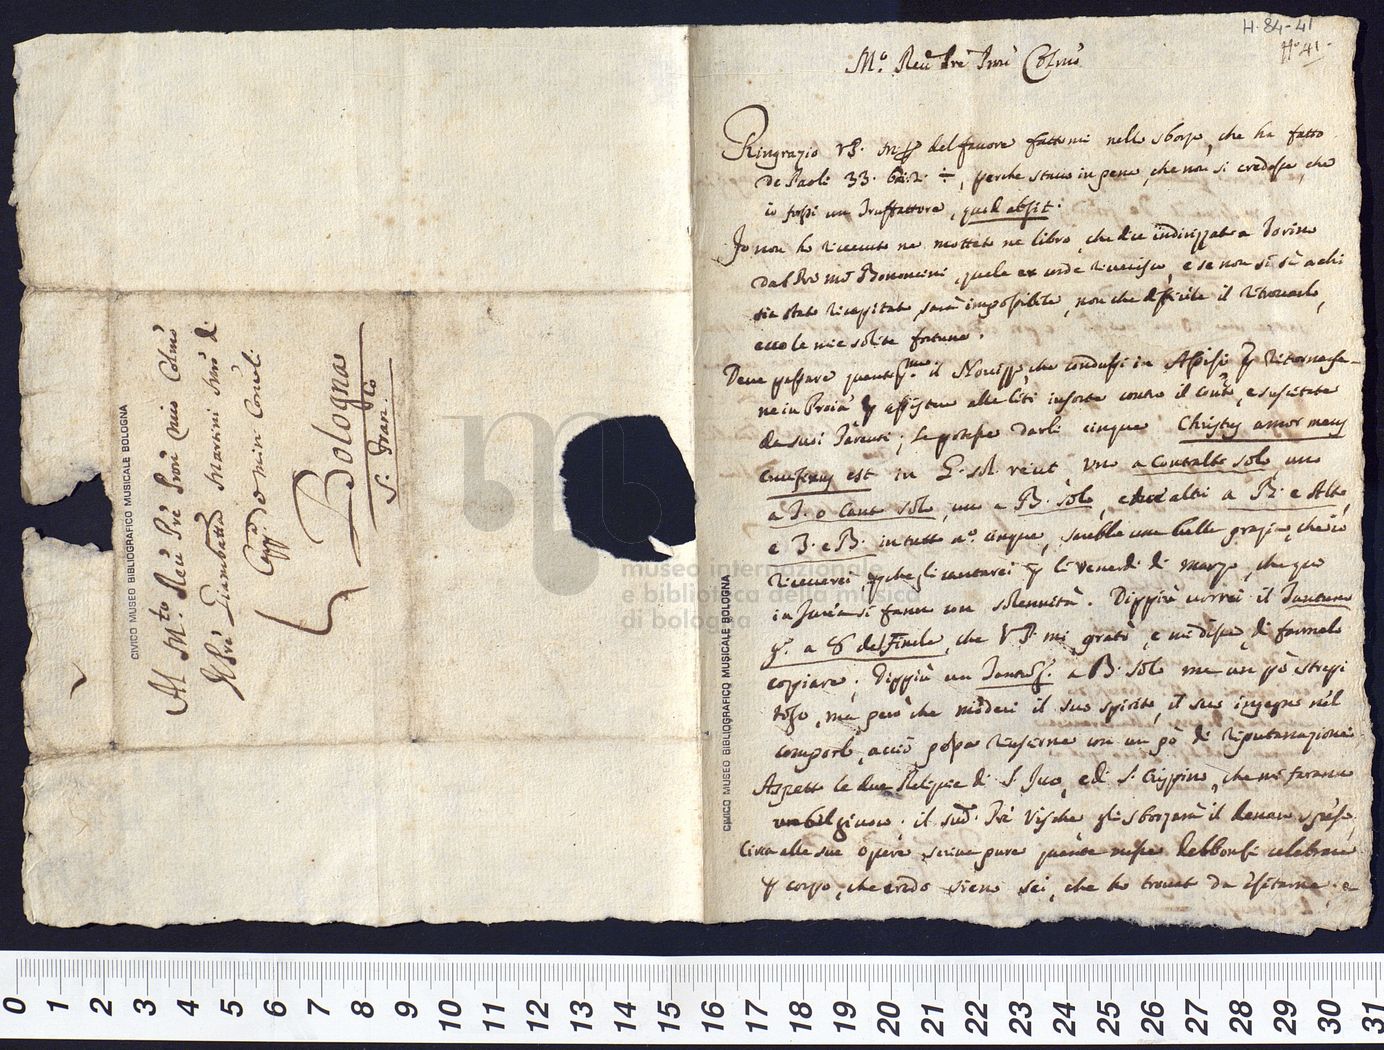 H. 84-41
N.o 41.
M.o Reu Prè Pron Colmo
Ringrazio VP. M del favore fattomi nello sborso, che ha fatto
De Paoli 33. , perche stavo in pena, che non si credesse, che
io fossi un Truffattore, quod absit.
Io non ho ricevuto ne mottetto ne libro, che dice indirizzato a Torino
dal Pre mro Bononcini, quale ex corde riverisco, e se non si sà a chi
sia stato ricapitato sarà impossibile, non che difficile il ritrovarlo,
ecco le mie solite fortune.
Deve passare quanto il Novizzo, che condussi in Assisi p ritornarse-
ne in Proia p assistere alle liti insorte contro il , e suscitate
da suoi Parenti; Se potesse darli cinque Christus amor meus
crucifixus est in G. sol reut uno a Contralto solo uno
a T. o Cant. solo, uno a B. solo, e due altri a B. e Alto,
e T. e B. in tutto n.o cinque, sarebbe una bella grazia, che io
riceverei perche gli cantarei p li venerdi di marzo, che qui
in Turin si fanno con solennità. Dippiù vorrei il Tantum
g.o a 8 del Finale, che VP. mi gratò, e mi disse, di farmelo
coppiare; Dippiù un Tant. a B. solo ma un pò strepi
toso, ma però che moderi il suo spirito, il suo ingegno nel
comporlo, acciò possa riuscirne con un pò di riputazzione
Aspetto le due Reliquie di S. Ivo, e di S. Crispino, che mi faranno
giuoco. il sud.o Prè Vische gli sborzarà il denaro speso,
Circa alle sue opere scriva pure quante messe debbonsi celebrare
p corpo, che credo sieno sei, che ho trovato da esitarne. e
Al M.to Reu Prè Pron mio Colmo
Il Prè Giambatta Martini Mro di
Capp.a D min Conuli
Bologna
S. Fran.co
CIVICO MUSEO BIBLIOGRAFICO MUSICALE BOLOGNA
CIVICO MUSEO BIBLIOGRAFICO MUSICALE BOLOGNA
museo internazionale
e biblioteca della musica
di bologna
0 1 2 3 4 5 6 7 8 9 10 11 12 13 14 15 16 17 18 19 20 21 22 23 24 25 26 27 28 29 30 31